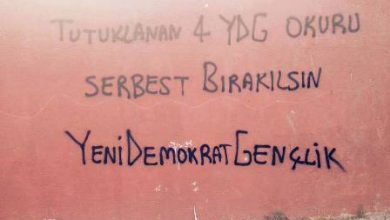 TUTUKLANAN 4 YDG OKURU
SERBEST BIRAKILSIN
YENİDEMOKRATGENÇLİK